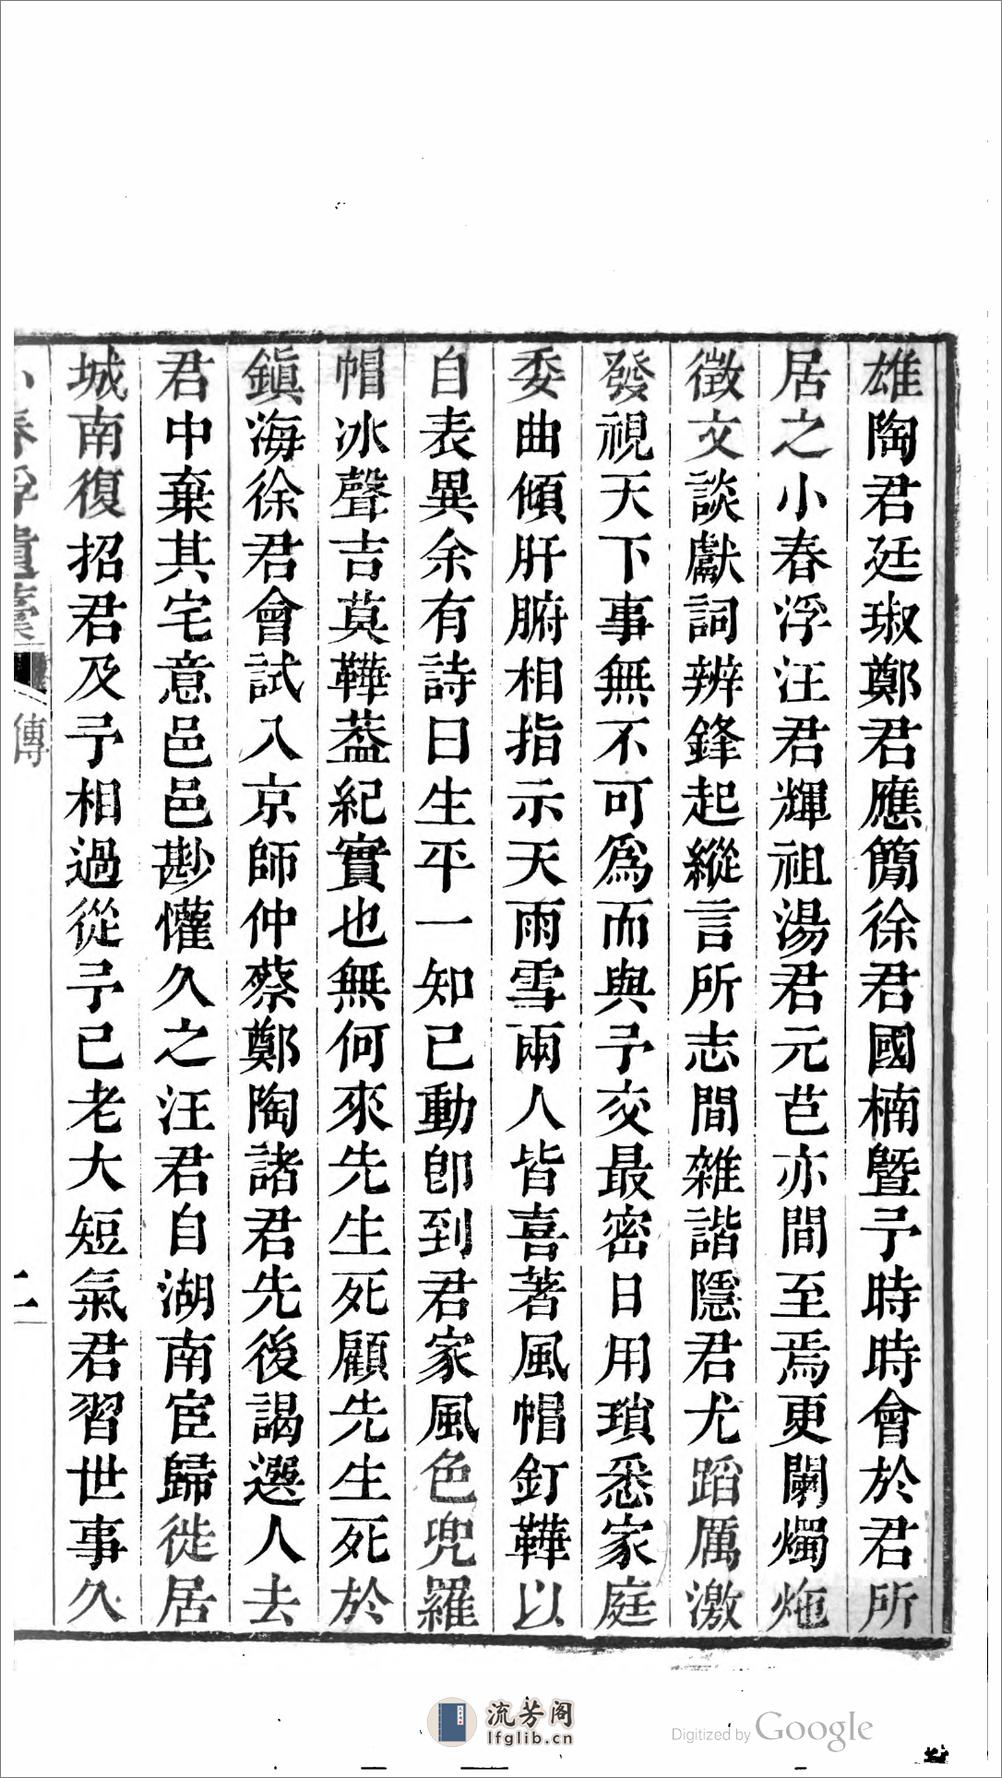 雄陶君廷琡鄭君應簡徐君國楠曁予時時會於君所
居之小春浮汪君輝祖湯君元芑亦間至焉更闌燭炧
徵文談獻詞辨鋒起縱言所志間雜諧隱君尤蹈厲激
發視天下事無不可爲而與予交最密日用瑣悉家庭
委曲傾肝腑相指示天雨雪兩人皆喜著風帽釘鞾以
自表異余有詩曰生平一知己動卽到君家風色兜羅
帽冰聲吉莫鞾葢紀實也無何來先生死顧先生死於
鎭海徐君會試入京師仲蔡鄭陶諸君先後謁選人去
君中棄其宅意邑邑尠懽久之汪君自湖南宦歸徙居
城南復招君及予相過從予已老大短氣君習世事久
小春浮遺藁
傳
二
流芳阁
lfglib.cn
Digitized by Google